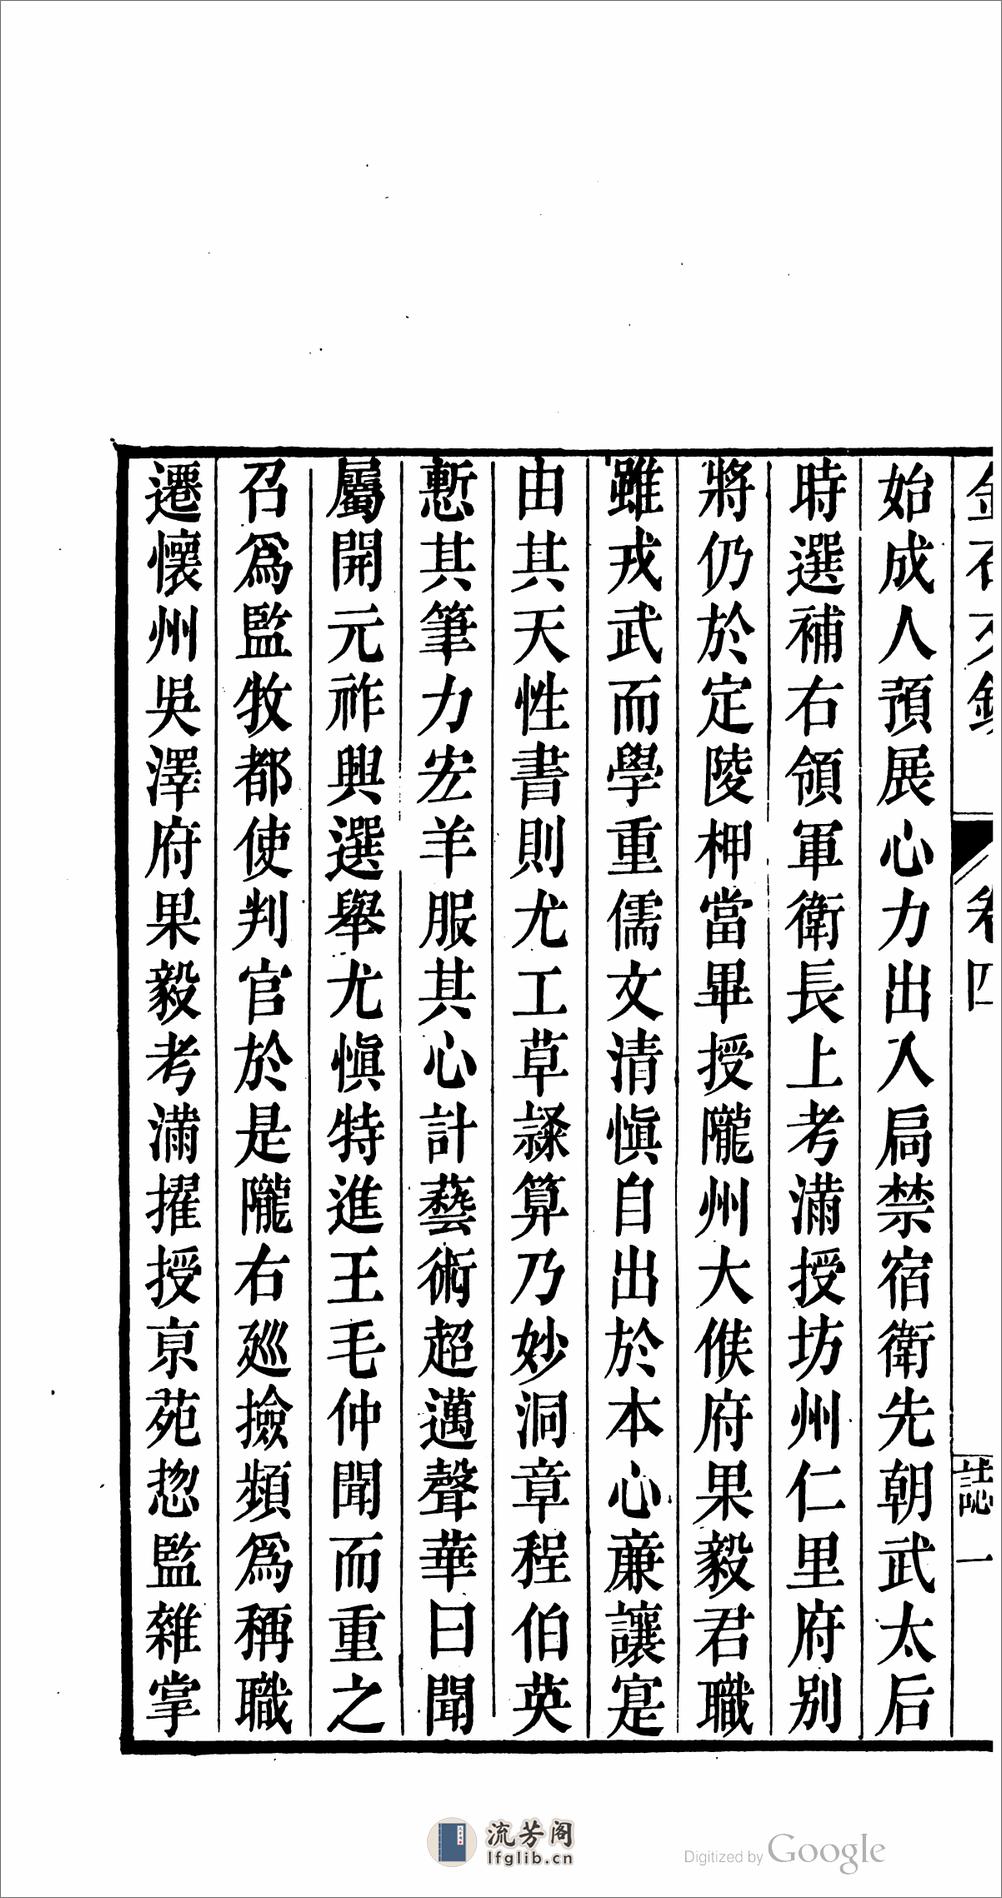 金石文鈔 卷四 誌 一
始成人預展心力出入扃禁宿衛先朝武太后
時選補右領軍衛長上考滿授坊州仁里府別
將仍於定陵柙當畢授隴州大候府果毅君職
雖戎武而學重儒文清慎自出於本心廉讓寔
由其天性書則尤工草隸算乃妙洞章程伯英
慙其筆力宏羊服其心計藝術超邁聲華曰聞
屬開元祚興選舉尤慎特進王毛仲聞而重之
召爲監牧都使判官於是隴右廵撿頻爲稱職
遷懷州吳澤府果毅考滿擢授京苑揔監雜掌
流芳阁
lfglib.cn
Digitized by Google